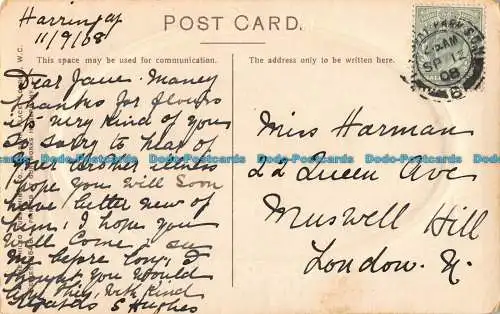 Harringay
11/9/08
POST CARD.
This space may be used for communication.
The address only to be written here.
Dear Jane. Maney
thanks for flowers
its very kind of you
So sorry to hear of
your brother illness
hope you will soon
have better new of
him, I hope you
Will Come & see
me before long. I
thought you would
like this, with kind
Regards S Hughes
Miss Harman
22 Queen Ave
Muswell Hill
London. N.
SP 12
08
Dodo-Postcards Dodo-Postcards Dodo-Postcards Dodo-Postcards